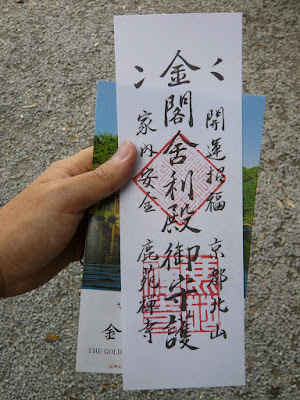 開運招福 京都北山
金閣舍利殿御守護
家内安全 鹿苑禅寺
金
THE GOLD